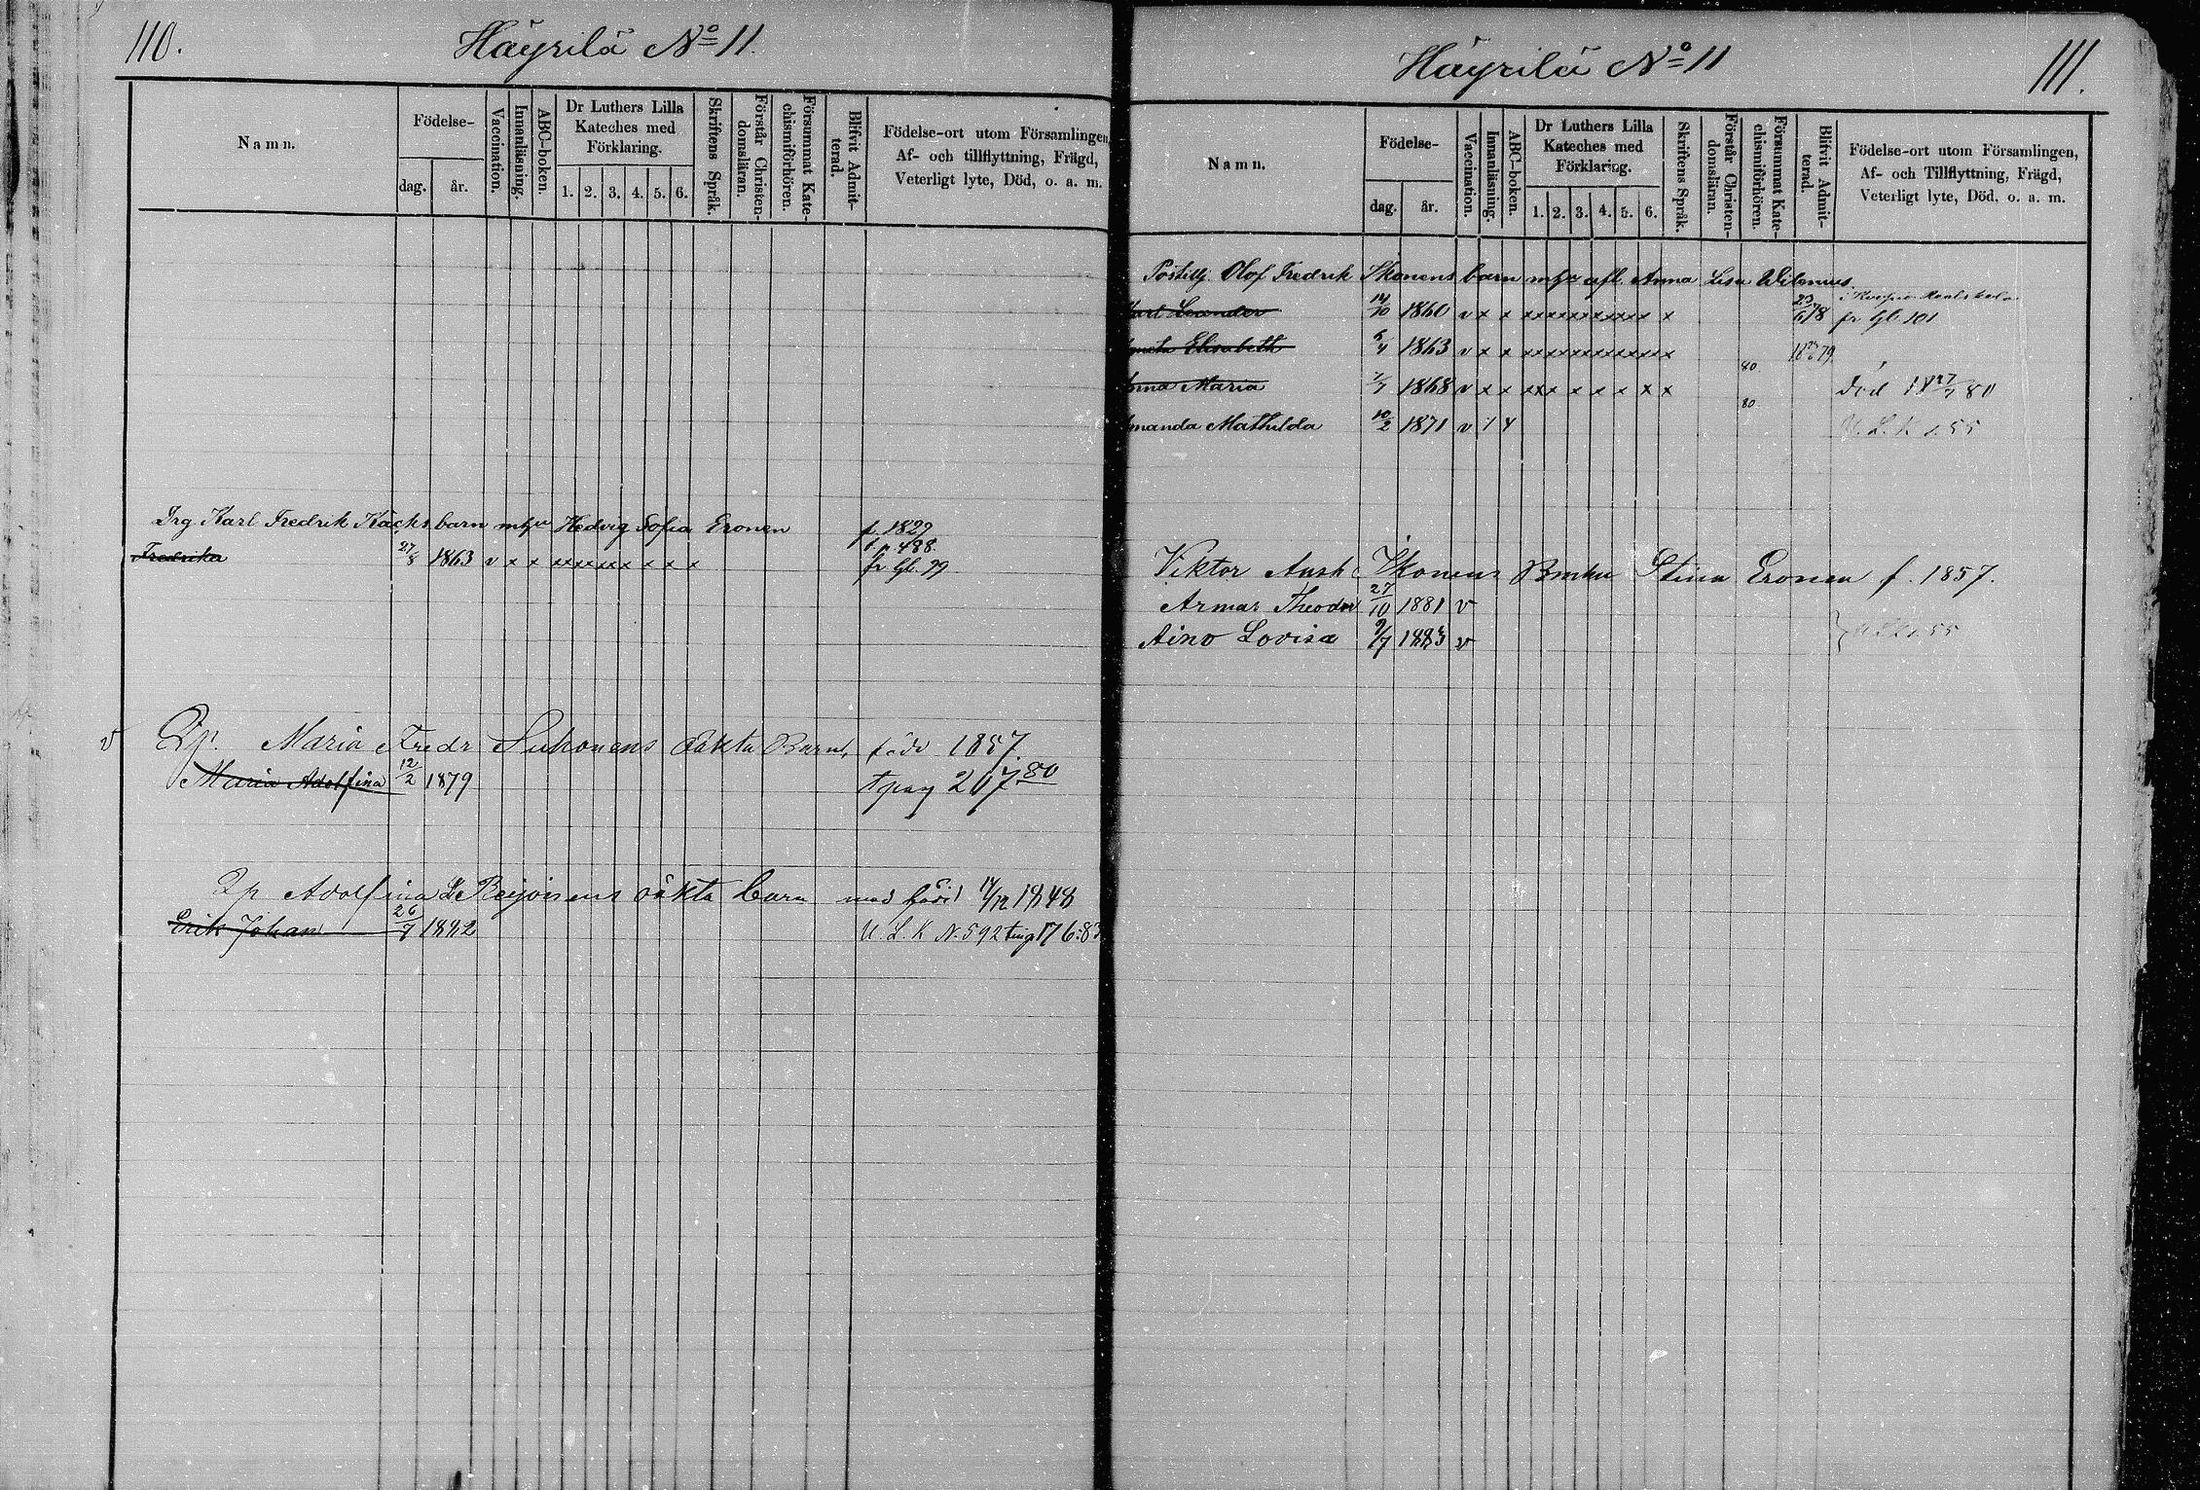 110.
Häyrilä No 11
Namn.
Födelse-
dag.
år.
Vaccination.
Innanläsning.
ABC-boken.
Dr Luthers Lilla
Kateches med
Förklaring.
1. 2. 3. 4. 5. 6.
Skriftens Språk.
Förstår Christen-
domsläran.
Försummat Kate-
chismiförhören.
Blifvit Admit-
terad.
Födelse-ort utom Församlingen,
Af- och tillflyttning, Frägd,
Veterligt lyte, Död, o. a. m.
Drg Karl Fredrik barn Hedvig Sofia Eronen f. 1829
t p 488
Fredrika 27/8 1863 v x x x x x x x x x x x x fr Gl. 99
v Maria Fredr Suhonens oäkta Barn, född 1857
Maria Adolfina 12/2 1879 t pag 207 80
Adolfina oäkta barn med född 14/12 1848
Erik Johan 26/7 1882 U. L. K N. 592 176:83
Häyrilä No 11
111.
Namn.
Födelse-
dag.
år.
Vaccination.
Innanläsning.
ABC-boken.
Dr Luthers Lilla
Kateches med
Förklaring.
1. 2. 3. 4. 5. 6.
Skriftens Språk.
Förstår Christen-
domsläran.
Försummat Kate-
chismiförhören.
Blifvit Admit-
terad.
Födelse-ort utom Församlingen,
Af- och Tillflyttning, Frägd,
Veterligt lyte, Död, o. a. m.
Olof Fredrik Ikonens barn afl. Anna Lisa
i Kuopio Realskola
Leander 14/10 1860 v x x x x x x x x x x x x x x 23/6 78 fr Gl. 101
Elisabeth 6/4 1863 v x x x x x x x x x x x x x x 79
80
Maria 1/7 1868 v x x x x x x x x x x Död 18 27/7 80
80
Mathilda 10/2 1871 v U. L. K s. 55
Viktor Ikonens Stina Eronen f. 1857.
Armas Theodor 27/10 1881 v
Aino Lovisa 9/7 1883 v